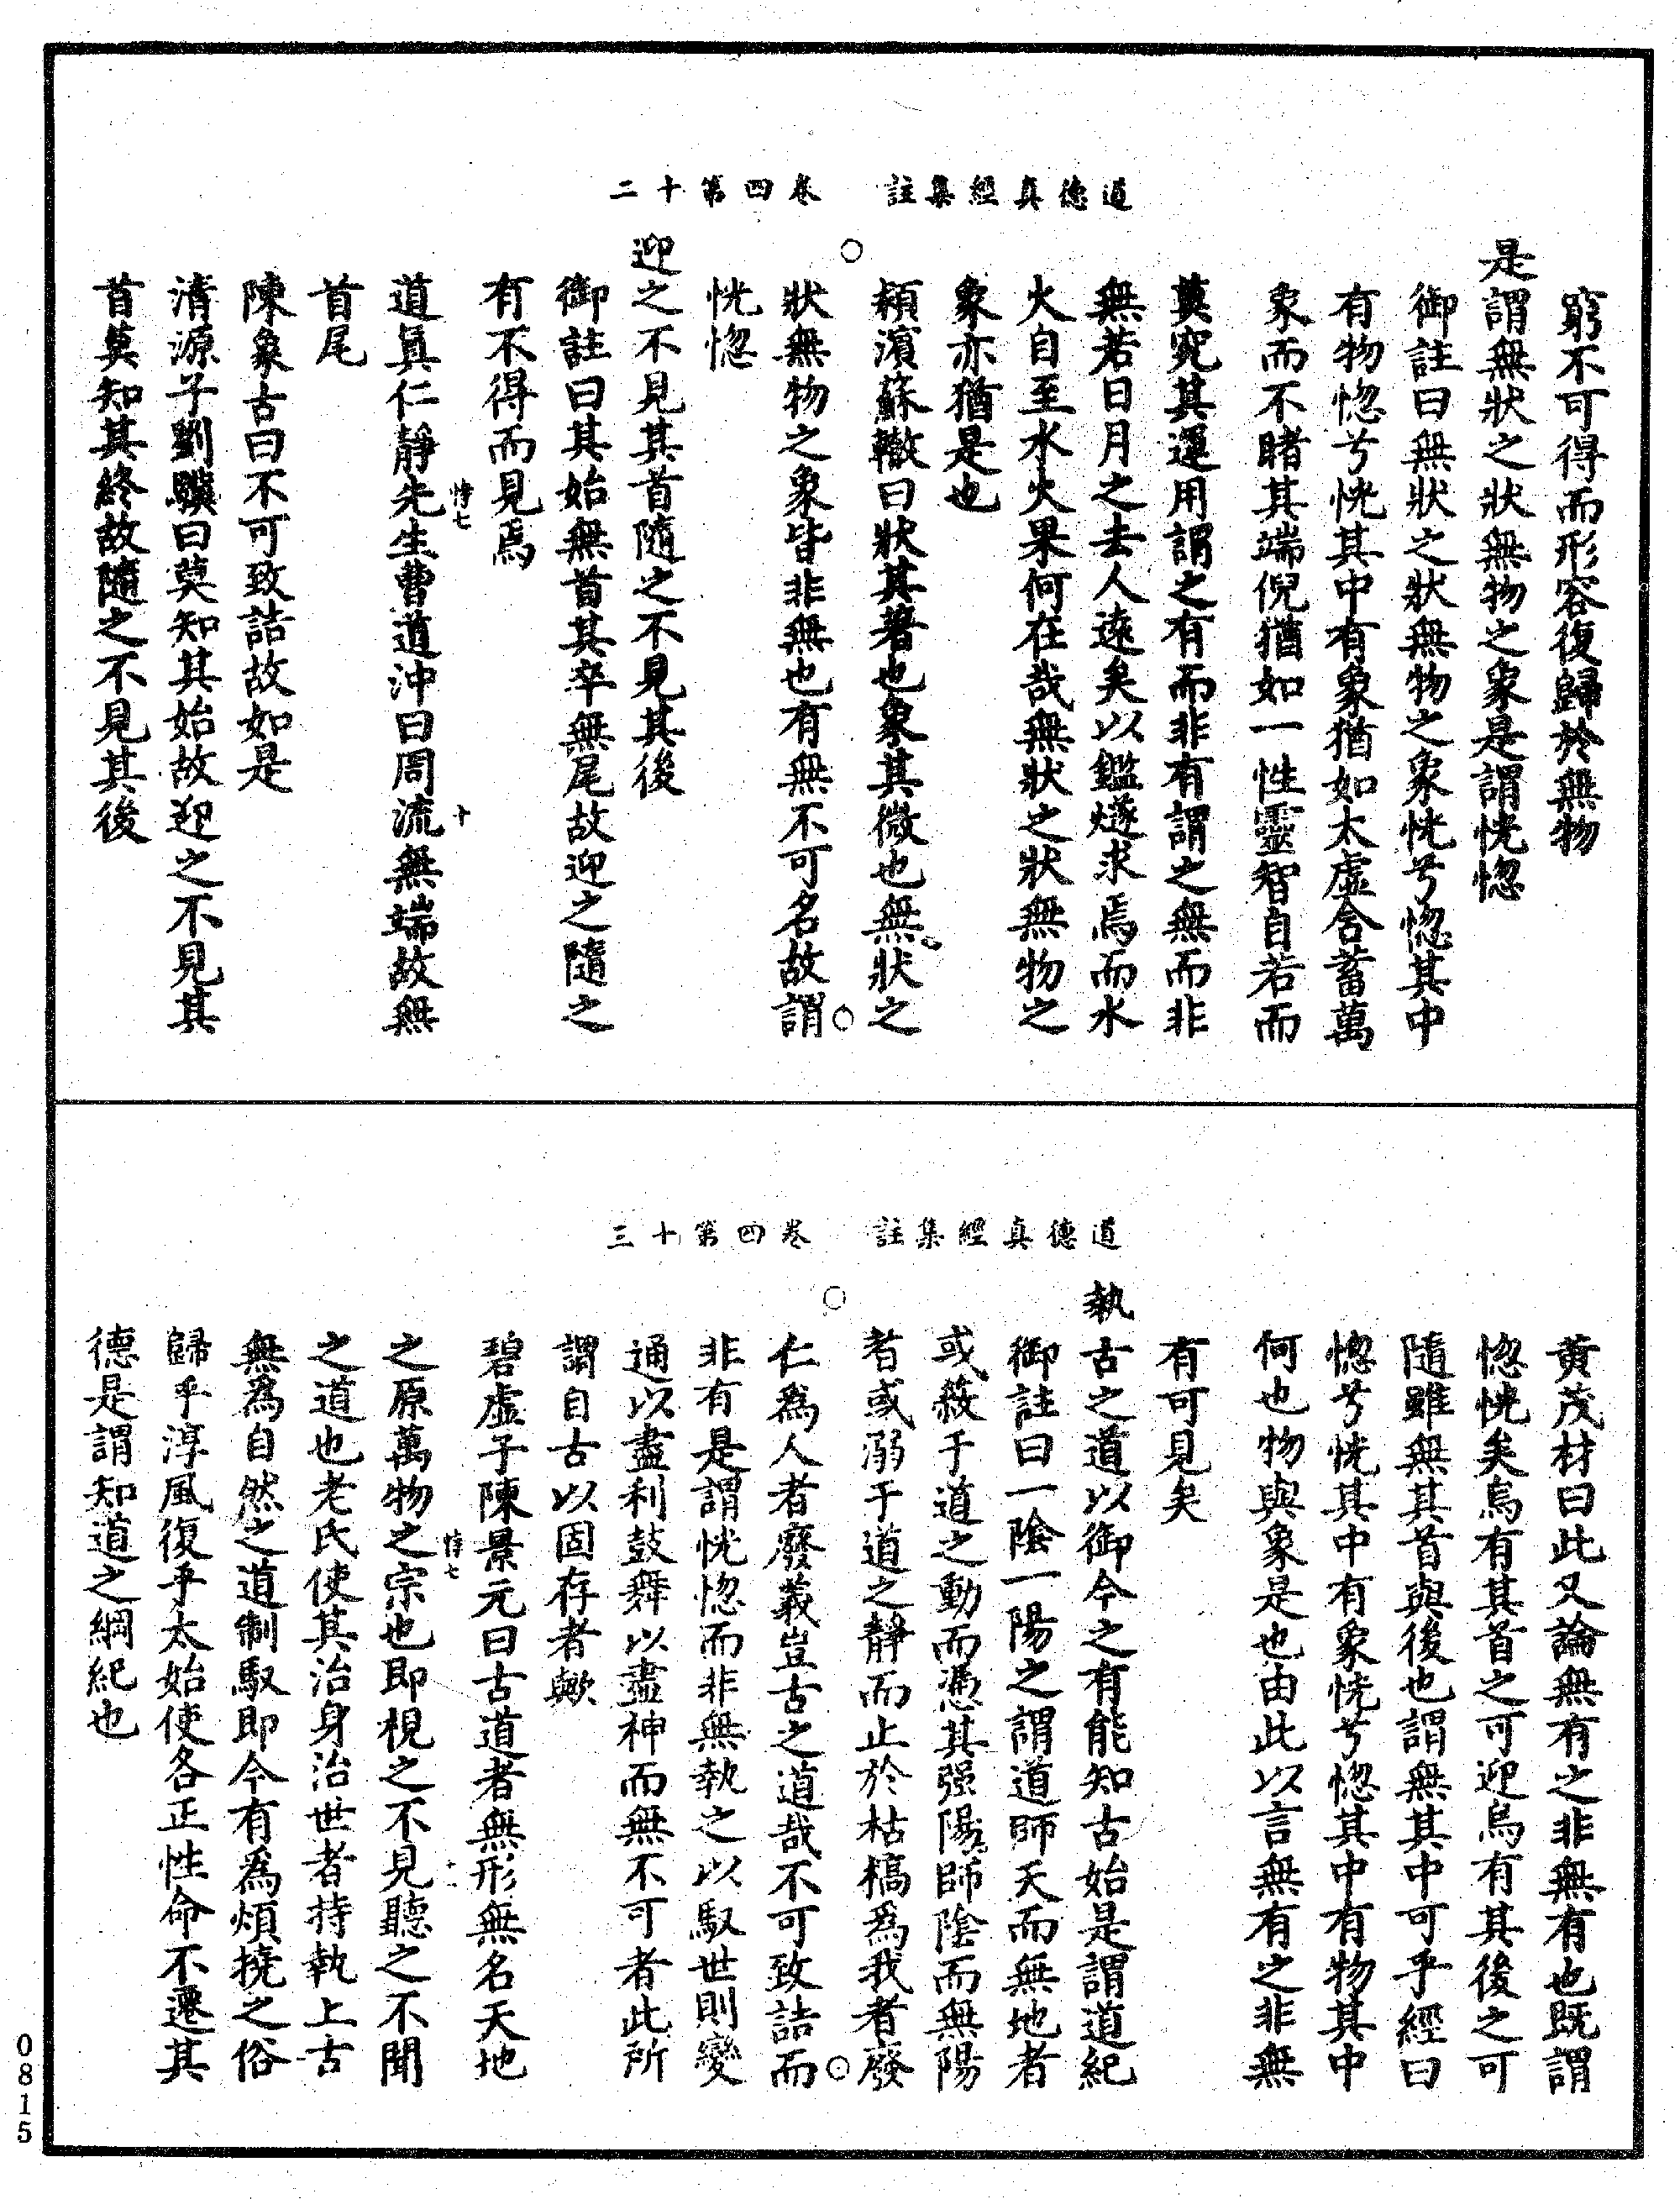 道德真經集註　卷四第十二
窮不可得而形容復歸於無物
是謂無狀之狀無物之象是謂恍惚
御註曰無狀之狀無物之象恍兮惚其中
有物惚兮恍其中有象猶如太虛含蓄萬
象而不睹其端倪猶如一性靈智自若而
莫究其運用謂之有而非有謂之無而非
無若日月之去人遠矣以鑑燧求焉而水
火自至水火果何在哉無狀之狀無物之
象亦猶是也
潁濱蘇轍曰狀其著也象其微也無狀之
狀無物之象皆非無也有無不可名故謂
恍惚
迎之不見其首隨之不見其後
御註曰其始無首其卒無尾故迎之隨之
有不得而見焉
悖七　十
道真仁靜先生曹道沖曰周流無端故無
首尾
陳象古曰不可致詰故如是
清源子劉驥曰莫知其始故迎之不見其
首莫知其終故隨之不見其後
道德真經集註　卷四第十三
黃茂材曰此又論無有之非無有也既謂
惚恍矣烏有其首之可迎烏有其後之可
隨雖無其首與後也謂無其中可乎經曰
惚兮恍其中有象恍兮惚其中有物其中
何也物與象是也由此以言無有之非無
有可見矣
執古之道以御今之有能知古始是謂道紀
御註曰一陰一陽之謂道師天而無地者
或蔽于道之動而憑其强陽師陰而無陽
者或溺于道之靜而止於枯槁爲我者廢
仁爲人者廢義豈古之道哉不可致詰而
非有是謂恍惚而非無執之以馭世則變
通以盡利鼓舞以盡神而無不可者此所
謂自古以固存者歟
碧虛子陳景元曰古道者無形無名天地
悖七　十一
之原萬物之宗也即視之不見聽之不聞
之道也老氏使其治身治世者持執上古
無爲自然之道制馭即今有爲煩撓之俗
歸乎淳風復乎太始使各正性命不遷其
德是謂知道之綱紀也
0815